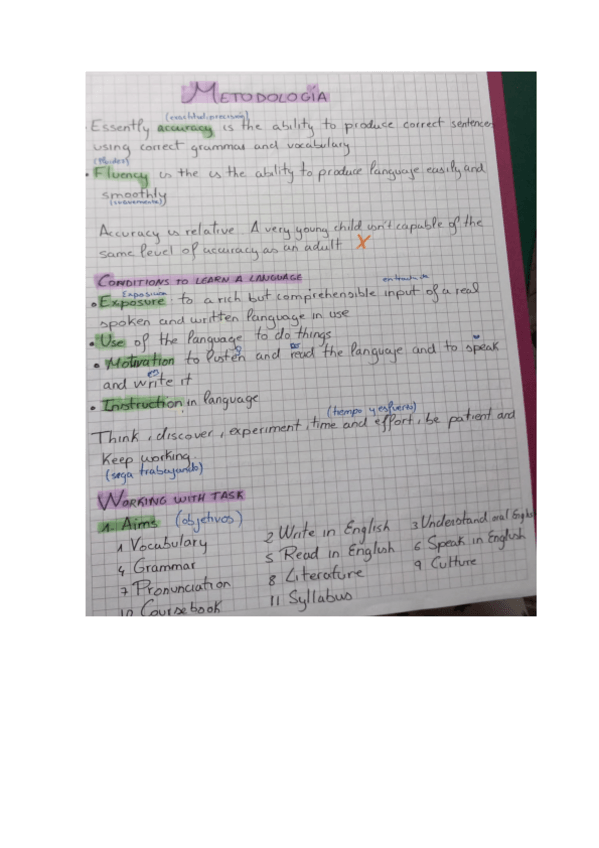 METODOLOGÍA
Essently accuracy is the ability to produce correct sentences
using correct grammar and vocabulary
(fluidez)
• Fluency is the is the ability to produce language easily and
smoothly
(suavemente)
Accuracy is relative. A very young child isn't capable of the
same level of accuracy as an adult X
CONDITIONS TO LEARN A LANGUAGE
Exposición
• Exposure to a rich but comprehensible input of a real
spoken and written language in use
• Use of the language to do things
• Motivation to listen and read the language and to speak
and write it
• Instruction in language
(tiempo y esfuerzo)
Think, discover, experiment, time and effort, be patient and
Keep working
(siga trabajando)
WORKING WITH TASK
1. Aims (objetivos)
1 Vocabulary 2 Write in English 3 Understand oral
4 Grammar 5 Read in English 6 Speak in English
7 Pronunciation 8 Literature 9 Culture
10 Coursebook 11 Syllabus